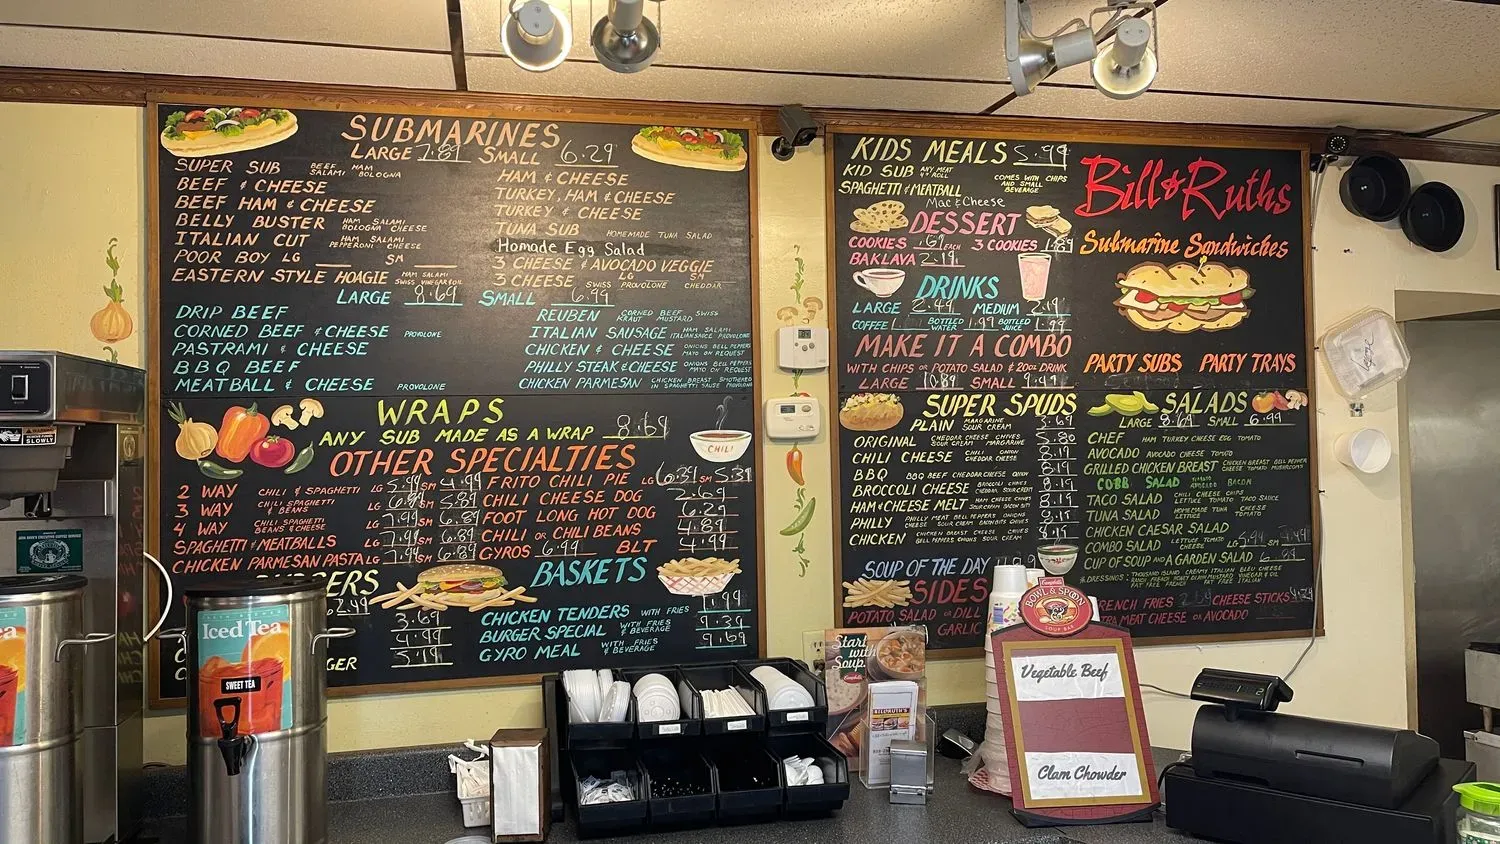 SUBMARINES
LARGE 7.89 SMALL 6.29
SUPER SUB BEEF HAM SALAMI BOLOGNA
BEEF & CHEESE
BEEF HAM & CHEESE
BELLY BUSTER HAM SALAMI BOLOGNA CHEESE
ITALIAN CUT HAM SALAMI PEPPERONI CHEESE
POOR BOY LG SM
EASTERN STYLE HOAGIE HAM SALAMI SWISS VINEGAR & OIL
HAM & CHEESE
TURKEY, HAM & CHEESE
TURKEY & CHEESE
TUNA SUB HOMEMADE TUNA SALAD
Homade Egg Salad
3 CHEESE & AVOCADO VEGGIE
3 CHEESE SWISS PROVOLONE CHEDDAR
LG SM
LARGE 8.69 SMALL 6.99
DRIP BEEF
CORNED BEEF & CHEESE PROVOLONE
PASTRAMI & CHEESE
BBQ BEEF
MEATBALL & CHEESE PROVOLONE
REUBEN CORNED BEEF SWISS KRAUT MUSTARD
ITALIAN SAUSAGE HAM SALAMI ITALIAN SAUCE PROVOLONE
CHICKEN & CHEESE ONIONS BELL PEPPERS MAYO ON REQUEST
PHILLY STEAK & CHEESE ONIONS BELL PEPPERS MAYO ON REQUEST
CHICKEN PARMESAN CHICKEN BREAST SMOTHERED IN SPAGHETTI SAUCE PROVOLONE
WRAPS
ANY SUB MADE AS A WRAP 8.69
CHILI
OTHER SPECIALTIES
2 WAY CHILI & SPAGHETTI LG 5.99 SM 4.99
3 WAY CHILI SPAGHETTI & BEANS LG 6.99 SM 5.89
4 WAY CHILI SPAGHETTI BEANS & CHEESE LG 7.99 SM 6.89
SPAGHETTI & MEATBALLS LG 7.99 SM 6.89
CHICKEN PARMESAN PASTA LG 7.99 SM 6.89
FRITO CHILI PIE LG 6.39 SM 5.39
CHILI CHEESE DOG 2.69
FOOT LONG HOT DOG 6.29
CHILI OR CHILI BEANS 4.89
GYROS 6.99 BLT 4.99
BURGERS
2.49
3.69
4.99
5.19
BASKETS
CHICKEN TENDERS WITH FRIES 7.99
BURGER SPECIAL WITH FRIES & BEVERAGE 9.39
GYRO MEAL WITH FRIES & BEVERAGE 9.69
KIDS MEALS 5.99
KID SUB ANY MEAT ROLL
SPAGHETTI & MEATBALL
Mac & Cheese
COMES WITH CHIPS AND SMALL BEVERAGE
DESSERT
COOKIES .69 EACH 3 COOKIES 1.89
BAKLAVA 2.19
DRINKS
LARGE 2.49 MEDIUM 2.19
COFFEE BOTTLED WATER 1.99 BOTTLED JUICE 1.99
MAKE IT A COMBO
WITH CHIPS OR POTATO SALAD & 20oz DRINK
LARGE 10.89 SMALL 9.49
Bill & Ruths
Submarine Sandwiches
PARTY SUBS PARTY TRAYS
SUPER SPUDS
PLAIN MARGARINE SOUR CREAM 3.69
ORIGINAL CHEDDAR CHEESE CHIVES SOUR CREAM MARGARINE 5.80
CHILI CHEESE CHILI ONION CHEDDAR CHEESE 8.19
BBQ BBQ BEEF CHEDDAR CHEESE ONION 8.19
BROCCOLI CHEESE BROCCOLI CHIVES CHEDDAR SOUR CREAM 8.19
HAM & CHEESE MELT HAM CHEESE CHIVES SOUR CREAM BACON BITS 8.19
PHILLY PHILLY MEAT BELL PEPPERS ONIONS CHEESE SOUR CREAM BACON BITS CHIVES 8.19
CHICKEN CHICKEN BREAST CHEESE CHIVES BELL PEPPERS ONIONS SOUR CREAM 8.19
SOUP OF THE DAY
SALADS
LARGE 8.69 SMALL 6.99
CHEF HAM TURKEY CHEESE EGG TOMATO
AVOCADO AVOCADO CHEESE TOMATO
GRILLED CHICKEN BREAST CHICKEN BREAST BELL PEPPER CHEESE TOMATO MUSHROOMS
COBB SALAD TOMATO AVOCADO BACON
TACO SALAD CHILI CHEESE CHIPS LETTUCE TOMATO TACO SAUCE
TUNA SALAD HOMEMADE TUNA CHEESE LETTUCE TOMATO
CHICKEN CAESAR SALAD
COMBO SALAD LETTUCE TOMATO CHEESE LG 5.99 SM
CUP OF SOUP AND A GARDEN SALAD
DRESSINGS THOUSAND ISLAND CREAMY ITALIAN BLEU CHEESE RANCH FRENCH HONEY DIJON MUSTARD VINEGAR & OIL FAT FREE FRENCH FAT FREE ITALIAN
SIDES
POTATO SALAD OR DILL
GARLIC
FRENCH FRIES CHEESE STICKS
EXTRA MEAT CHEESE OR AVOCADO
WARNING
Iced Tea
SWEET TEA
Start with Soup.
Campbell's
BILL & RUTH'S
Campbell's
BOWL & SPOON
SOUP BAR
Vegetable Beef
Clam Chowder